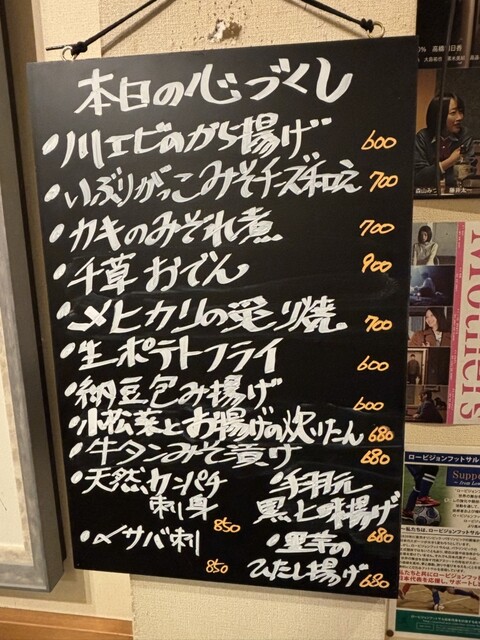 本日の心づくし
・川エビのから揚げ 600
・いぶりがっこみそチーズ和え 700
・カキのみぞれ煮 700
・千草おでん 900
・メヒカリの塩焼 700
・生ポテトフライ 600
・納豆包み揚げ 600
・小松菜とお揚げの炊いたん 680
・牛タンみそ漬け 680
・天然カンパチ
刺身 850
・〆サバ刺 850
・手羽元
黒七味揚げ 680
・里芋の
ひたし揚げ 680
Mothers
ロービジョンフットサル